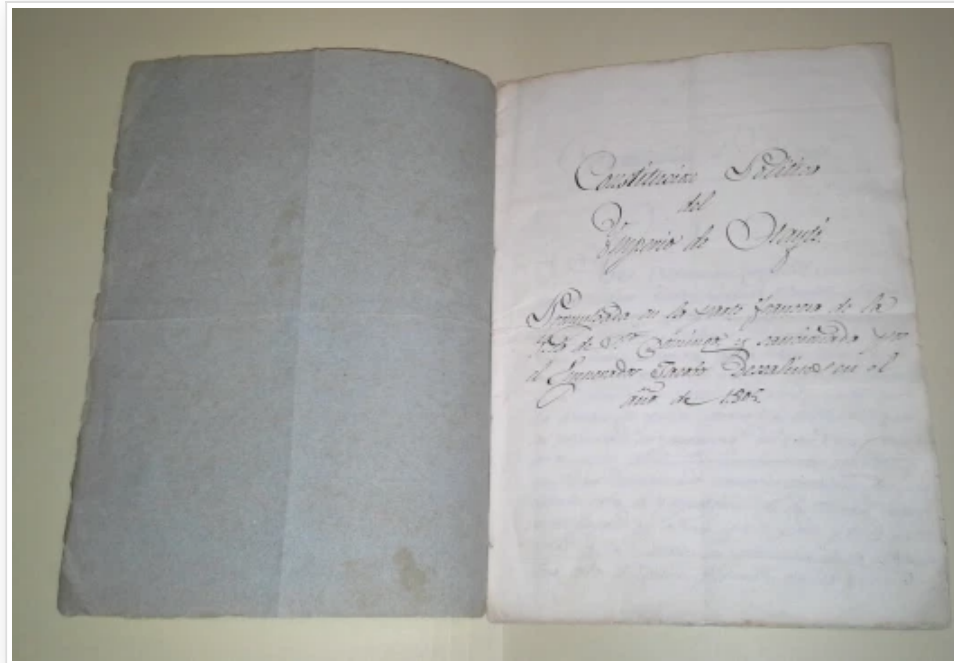 Constitucion Politica
del
Ymperio de Hayti.
Promulgada en la parte francesa de la
Ysla de Sto. Domingo y sancionada por
el Emperador Jacobo Desalines en el
año de 1805